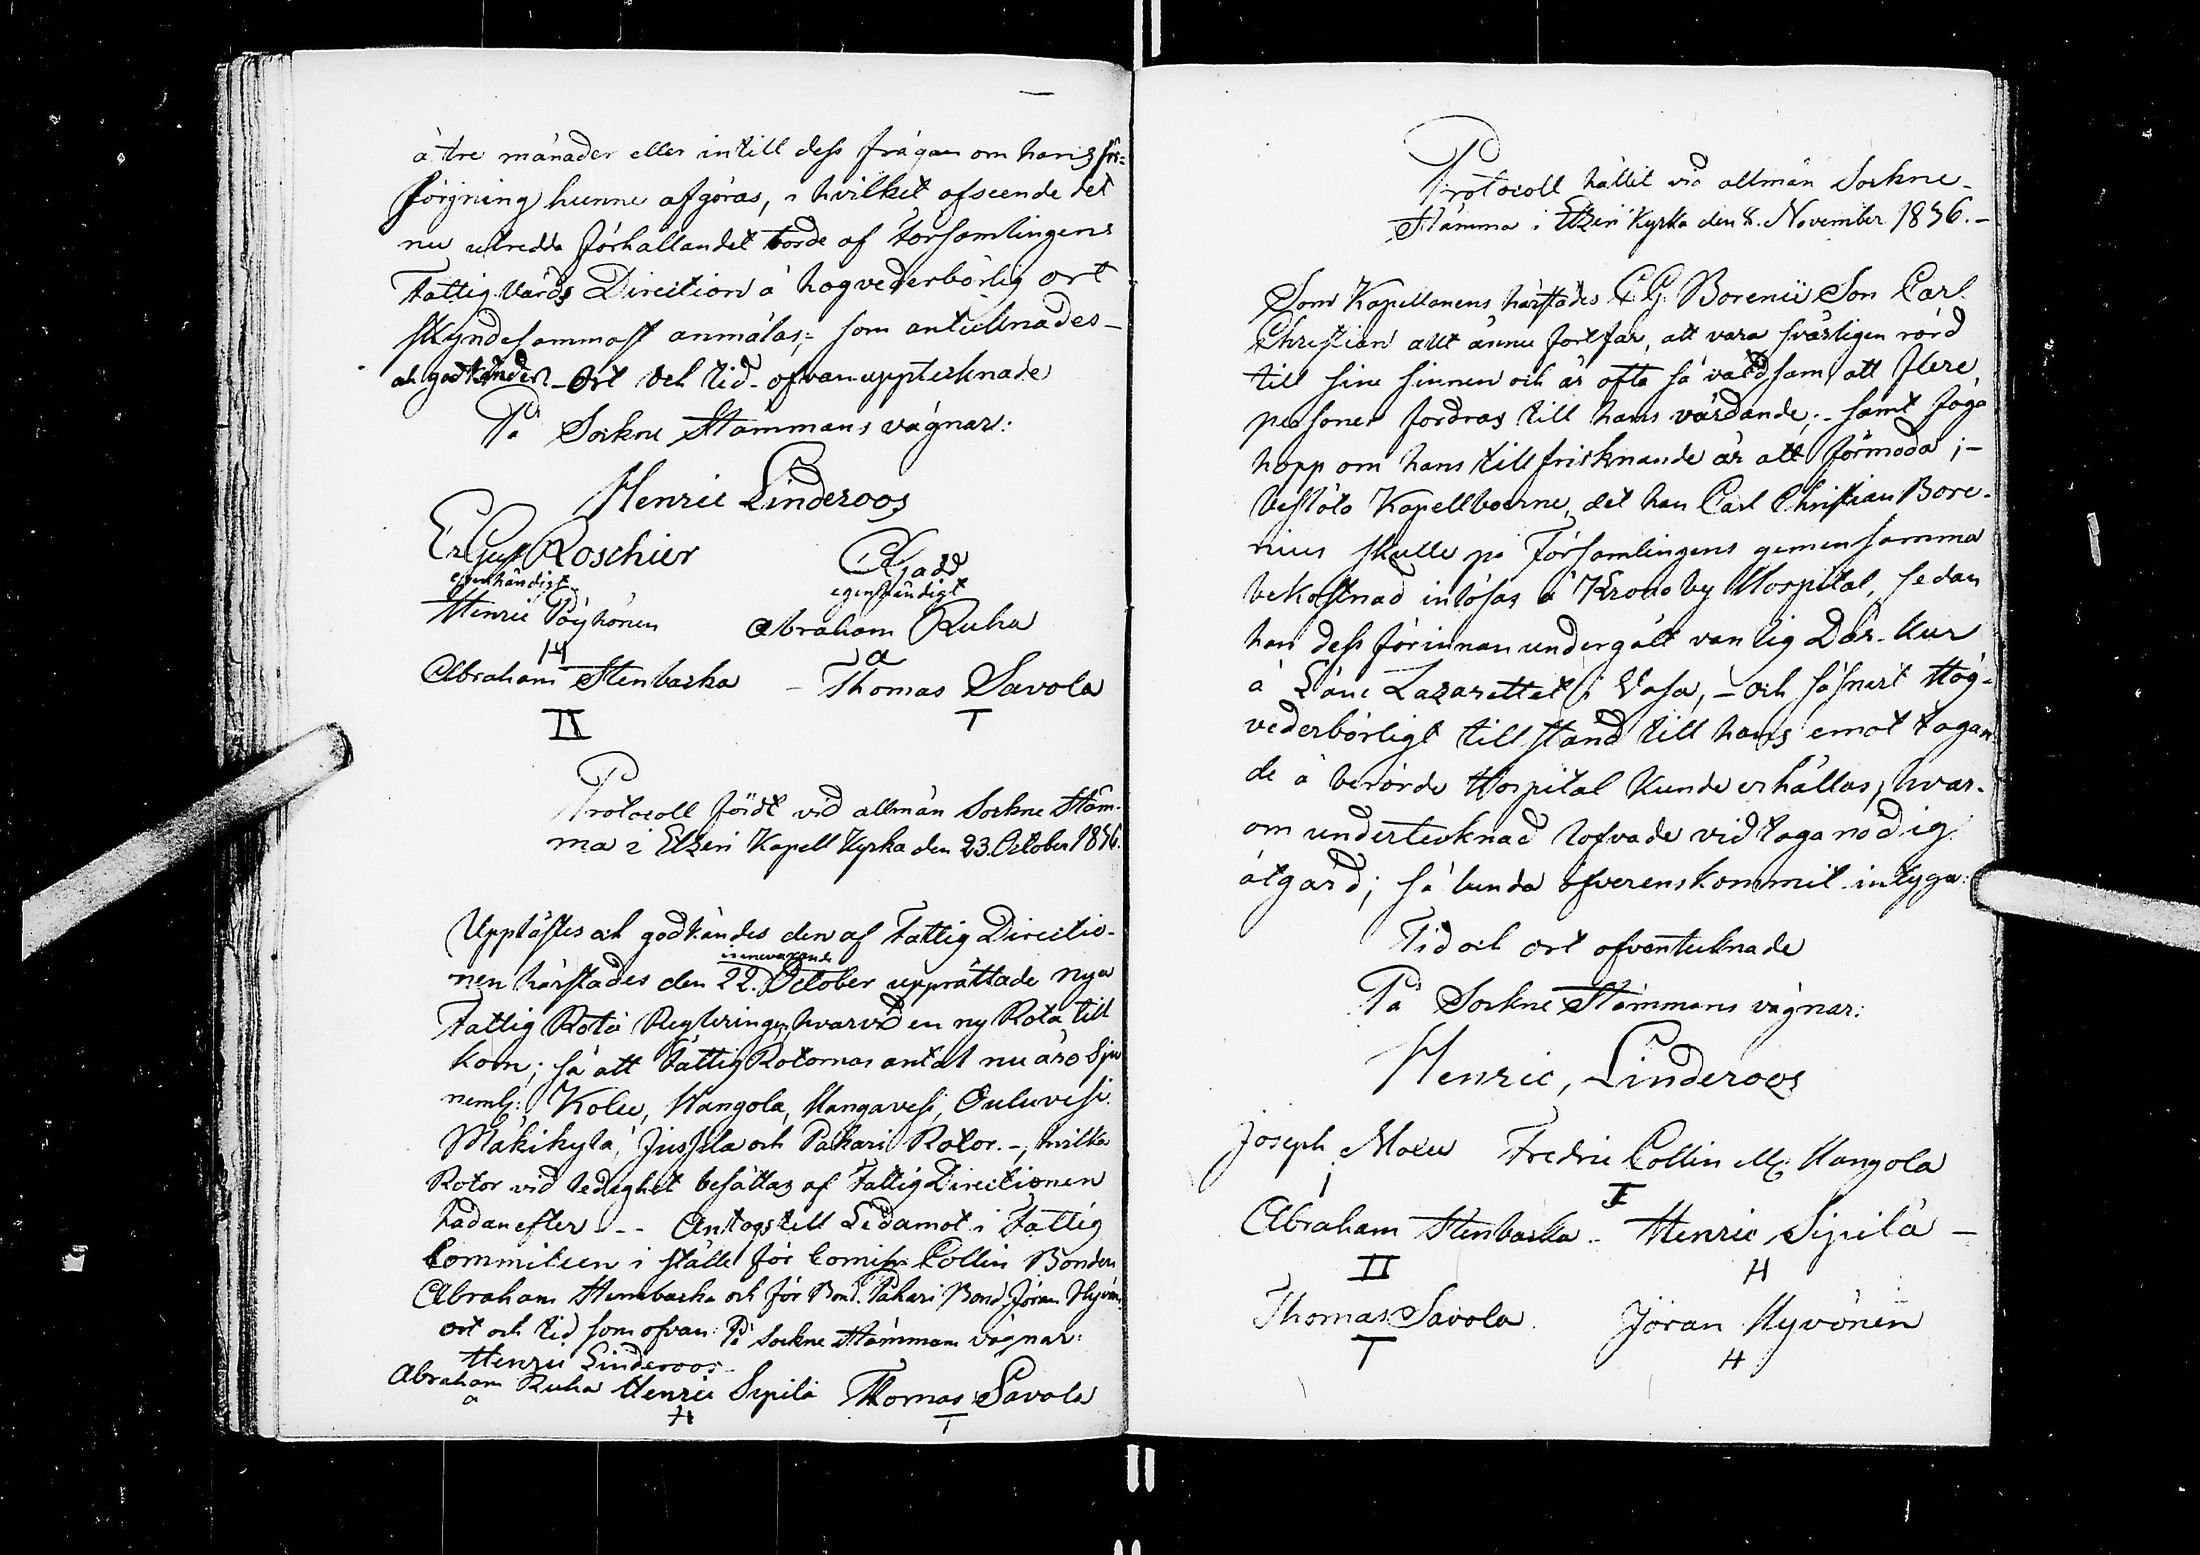 à tre månader eller intill dess frågan om hans för=
sörjning hunne afgöras, i hvilket afseende det
nu utredda förhållandet borde af Församlingens
Fattig Vårds Direction å högvederbörlig ort
skyndesammast anmälas; som antecknades
och godkändes. Ort och tid ofvanupptecknade
På Sockne Stämmans vägnar:
Henric Linderoos
Er Gust Roschier
egenhändigt
Gadd
egenhändigt
Henric Pöyhönen
H
Abraham Ruha
a
Abraham Stenbacka
II
Thomas Savola
T
Protocoll fördt vid allmän Sockne Stäm-
ma i Etzeri Kapell Kyrka den 23. October 1836.
Upplästes och godkändes den af Fattig Directio-
innevarande
nen härstädes den 22. October upprättade nya
Fattig Rota Regleringen, hvarvid en ny Rota till
kom; så att Fattig Rotornas antal nu äro Sju
neml: Kolu, Wangola, Hangavesi, Ouluvesi
Mäkikylä, Jussila och Pakari Rotor. -, hvilka
Rotor vid ledighet besättas af Fattig Directionen
hädanefter. - - Antogs till Ledamot i Fattig
Committeen i stället för Comiss: Collin Bonden
Abraham Stenbacka och för Bond. Pakari Bond. Jöran Hyvön.
ort och tid som ofvan: På Sockne Stämmans vägnar:
Henric Linderoos
Abraham Ruha Henric Sipilä Thomas Savola
a H T
Protocoll hållit vid allmän Sockne-
Stämma i Etzeri Kyrka den 8. November 1836. -
Som Kapellanens härstädes C. G. Borenii Son Carl
Christian allt ännu fortfar, att vara svårligen rörd
till sine sinnen och är ofta så våldsam, att flere
personer fordras till hans vårdande; - samt föga
hopp om hans tillfrisknande är att förmoda; -
beslöto Kapellboerne, det han Carl Christian Bore-
nius skulle på Församlingens gemensamma
bekostnad inlösas å Kronoby Hospital, sedan
han dess förinnan undergått vanlig Dår-Kur
å Läne Lazarettet i Vasa, - och såsnart Hög-
vederbörligt tillstånd till hans emot tagan
de å berörde Hospital kunde erhållas; hvar-
om undertecknad lofvade vidtaga nödig
åtgärd; så lunda öfverenskommit intyga:
Tid och ort ofvantecknade
På Sockne Stämmans vägnar:
Henric, Linderoos
Joseph Fredric Collin Wangola
Abraham Stenbacka - Henric Sipilä -
II H
Thomas Savola. Jöran Hyvönen
T H